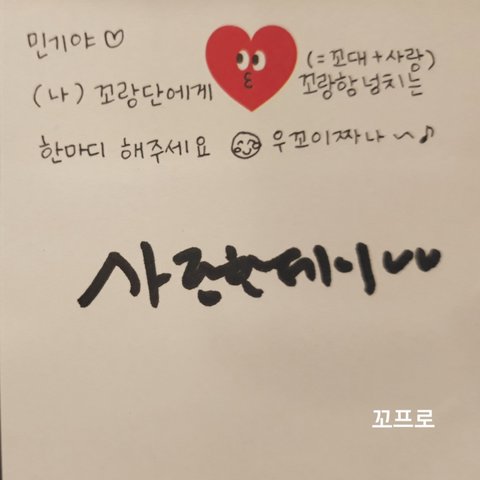 민기야 ♡
(= 꼬대 + 사랑)
(나) 꼬랑단에게 꼬랑함 넘치는
한마디 해주세요 우꼬이짜나 ~♪
사랑한데이 ♡♡
꼬프로